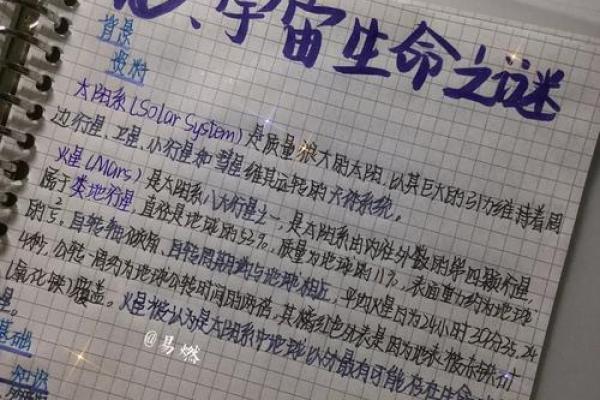 、宇宙生命之谜
背景
太阳系(Solar System)是质量很大的太阳,以其巨大的引力维持着周
边行星、卫星、小行星和彗星维其运转的天体系统。
火星(Mars)是太阳系八大行星之一,是太阳系由内往外数的第四颗行星,
属于类地行星,直径是地球的53%,质量为地球的11%,表面重力约为地球
的2/5。自转轴倾角、自转周期均与地球相近,平均火星日为24小时39分35.24
4秒,公转一周约为地球公转时间的两倍,其橘红色外表是因为地表被赤铁矿
(氧化铁)覆盖。火星被认为是太阳系中地球以外最有可能存在生命
星。
基础
知识
@易燃